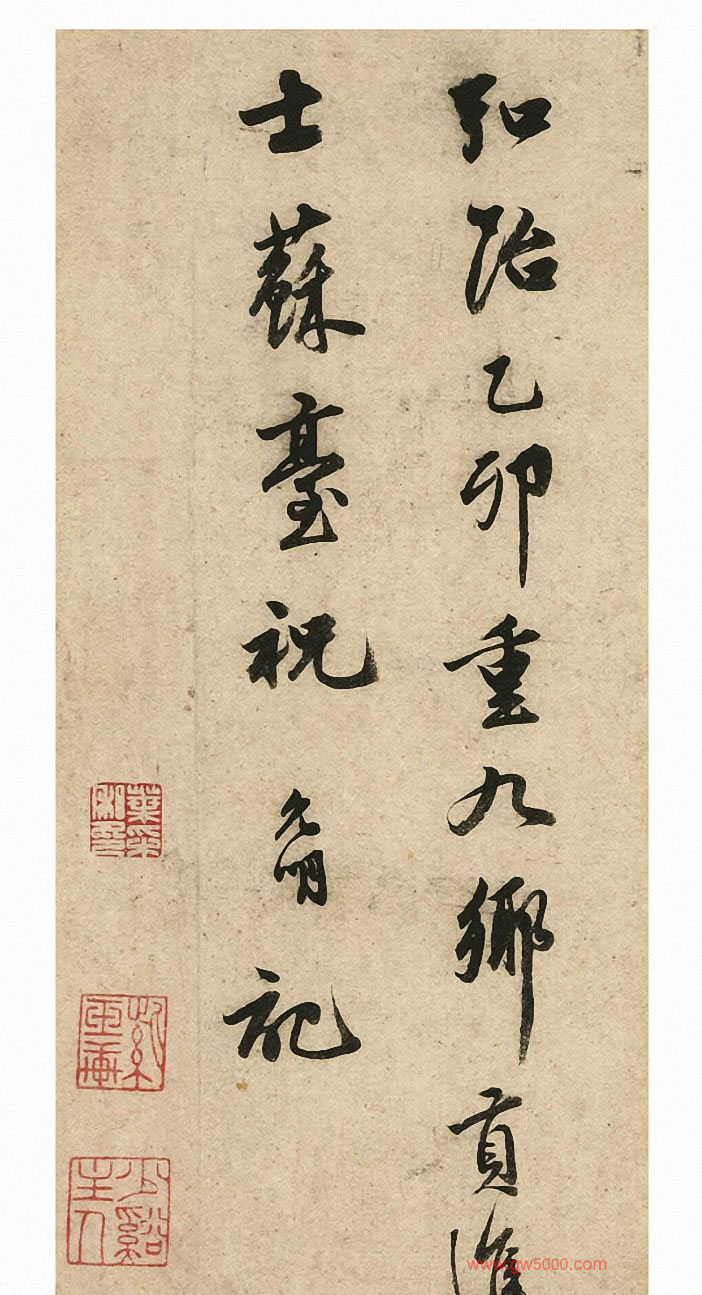 弘治乙卯重九鄉貢進
士蘇臺祝允明記
少谿主人
www.gw5000.com